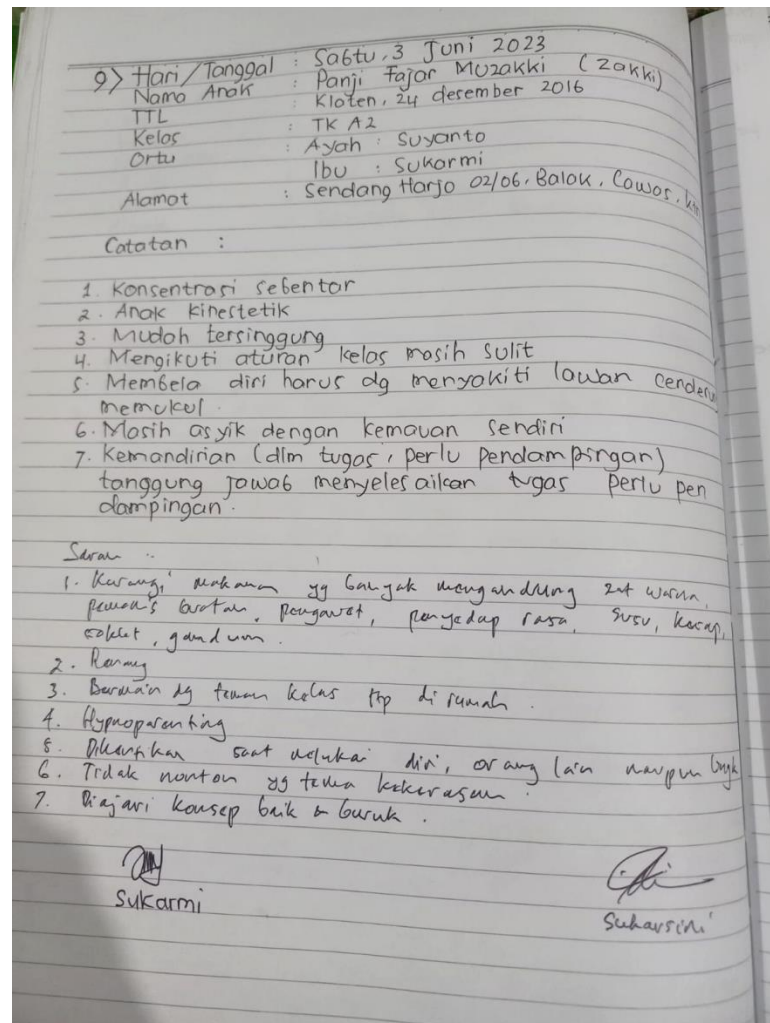 9) Hari/Tanggal : Sabtu, 3 Juni 2023
Nama Anak : Panji Fajar Muzakki (Zakki)
TTL : Klaten, 24 desember 2016
Kelas : TK A2
Ortu : Ayah : Suyanto
Ibu : Sukarmi
Alamat : Sendang Harjo 02/06, Balak, Cawas,
Catatan :
1. Konsentrasi sebentar
2. Anak kinestetik
3. Mudah tersinggung
4. Mengikuti aturan kelas masih sulit
5. Membela diri harus dg menyakiti lawan cenderu
memukul.
6. Masih asyik dengan kemauan sendiri
7. Kemandirian (dlm tugas, perlu pendampingan)
tanggung jawab menyelesaikan tugas perlu pen
dampingan.
Saran :
1. Kurangi makanan yg banyak mengandung zat warna,
pemanis buatan, pengawet, penyedap rasa, susu, kecap,
coklat, gandum.
2. Renang
3. Bermain dg teman kelas ttp di rumah.
4. Hypnoparenting
5. Dihentikan saat melukai diri, orang lain maupun lingk
6. Tidak nonton yg tema kekerasan.
7. Diajari konsep baik & buruk.
Sukarmi
Suharsini